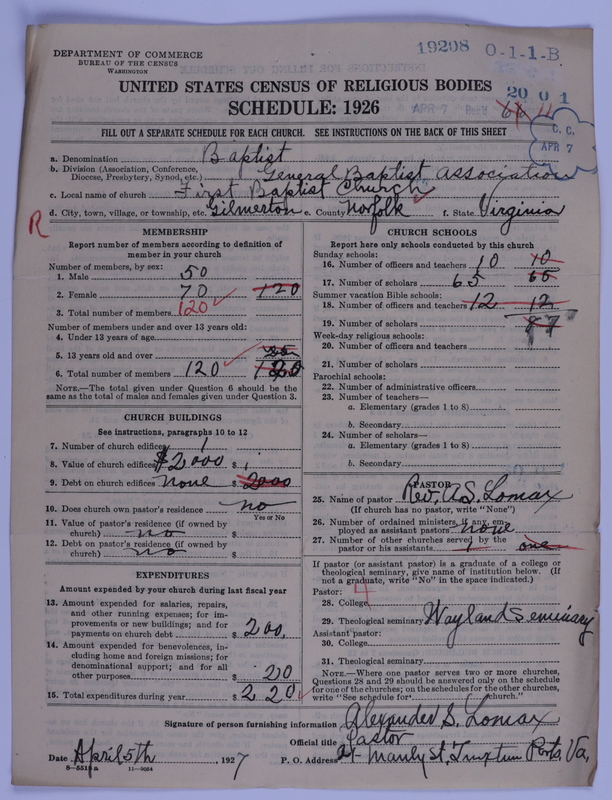 DEPARTMENT OF COMMERCE
BUREAU OF THE CENSUS
WASHINGTON
19208 O-1-1-B
UNITED STATES CENSUS OF RELIGIOUS BODIES
SCHEDULE: 1926
APR 7
2001
C. C.
APR 7
FILL OUT A SEPARATE SCHEDULE FOR EACH CHURCH. SEE INSTRUCTIONS ON THE BACK OF THIS SHEET
a. Denomination Baptist
b. Division (Association, Conference, Diocese, Presbytery, Synod, etc.) General Baptist Association
c. Local name of church First Baptist Church
d. City, town, village, or township, etc. Gilmerton e. County Norfolk f. State Virginia
R
MEMBERSHIP
Report number of members according to definition of
member in your church
Number of members, by sex:
1. Male 50
2. Female 70 120
3. Total number of members 120
Number of members under and over 13 years old:
4. Under 13 years of age
5. 13 years old and over
6. Total number of members 120 120
NOTE.—The total given under Question 6 should be the
same as the total of males and females given under Question 3.
CHURCH BUILDINGS
See instructions, paragraphs 10 to 12
7. Number of church edifices 1
8. Value of church edifices $2000 $
9. Debt on church edifices none $ 2000
10. Does church own pastor's residence no
Yes or No
11. Value of pastor's residence (if owned by
church) no $
12. Debt on pastor's residence (if owned by
church) no $
EXPENDITURES
Amount expended by your church during last fiscal year
13. Amount expended for salaries, repairs,
and other running expenses; for im-
provements or new buildings; and for
payments on church debt $ 200.
14. Amount expended for benevolences, in-
cluding home and foreign missions; for
denominational support; and for all
other purposes $ 20
15. Total expenditures during year $ 220
CHURCH SCHOOLS
Report here only schools conducted by this church
Sunday schools:
16. Number of officers and teachers 10 10
17. Number of scholars 65 65
Summer vacation Bible schools:
18. Number of officers and teachers 12 12
19. Number of scholars 87
Week-day religious schools:
20. Number of officers and teachers
21. Number of scholars
Parochial schools:
22. Number of administrative officers
23. Number of teachers—
a. Elementary (grades 1 to 8)
b. Secondary
24. Number of scholars—
a. Elementary (grades 1 to 8)
b. Secondary
PASTOR
25. Name of pastor Rev. A S. Lomax
(If church has no pastor, write "None")
26. Number of ordained ministers, if any, em-
ployed as assistant pastors none
27. Number of other churches served by the
pastor or his assistants 1 one
If pastor (or assistant pastor) is a graduate of a college or
theological seminary, give name of institution below. (If
not a graduate, write "No" in the space indicated.)
Pastor:
28. College 4
29. Theological seminary Wayland Seminary
Assistant pastor:
30. College
31. Theological seminary
NOTE.—Where one pastor serves two or more churches,
Questions 28 and 29 should be answered only on the schedule
for one of the churches; on the schedules for the other churches,
write "See schedule for church."
Signature of person furnishing information Alexander S. Lomax
Official title Pastor
Date April 5th, 1927 P. O. Address Manly St, Truxtun Ports Va,
8-5518a 11-9064